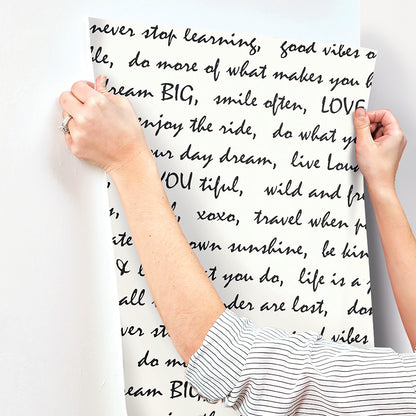 never stop learning, good vibes
do more of what makes you
dream BIG, smile often, LOVE
enjoy the ride, do what
day dream, live Loud
YOU tiful, wild and
xoxo, travel when
own sunshine, be
& you do, life is a
all are lost,
stop vibes
do
BIG